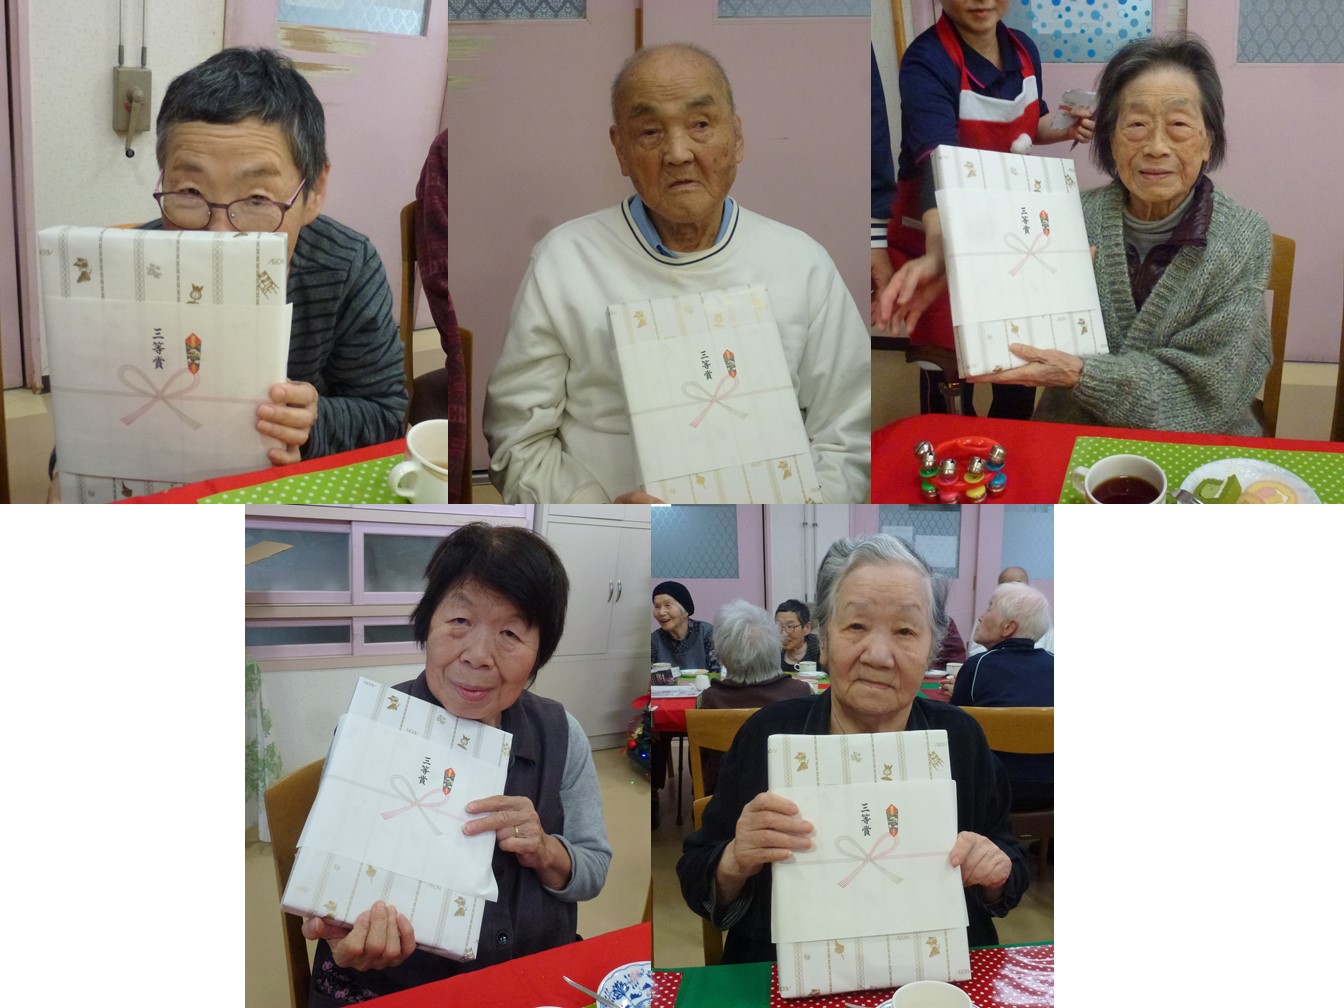 三等賞
三等賞
三等賞
三等賞
三等賞